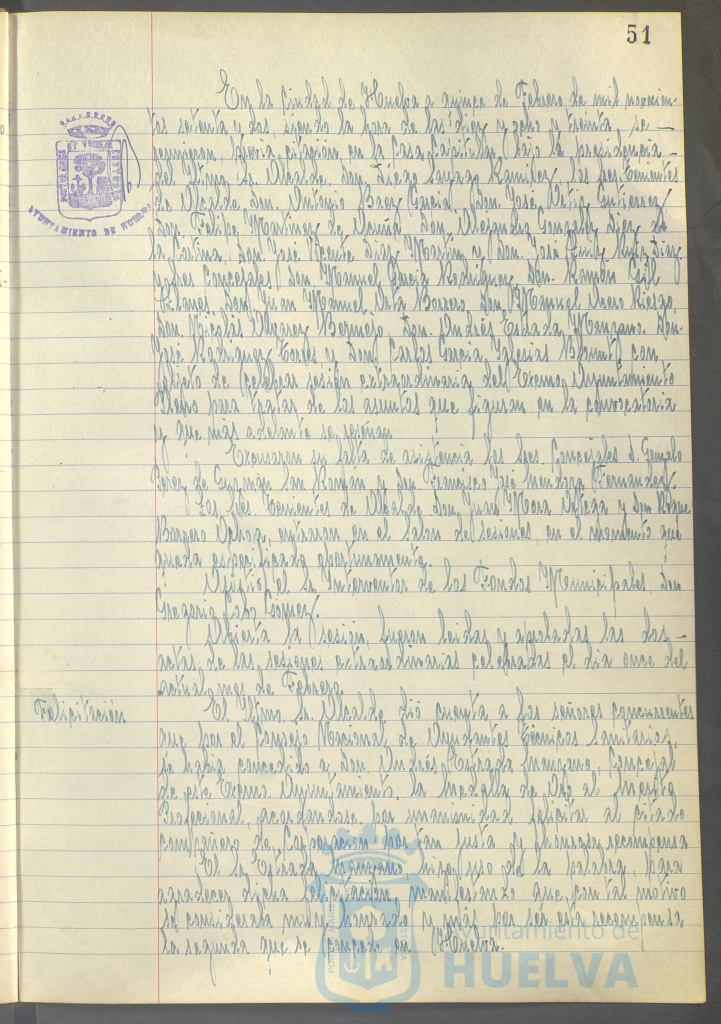 51
En la Ciudad de Huelva a quince de Febrero de mil novecien-
tos setenta y dos, siendo la hora de las diez y ocho y treinta se
reunieron, previa citación, en la Casa Capitular, bajo la presidencia
del Iltmo. Sr. Alcalde, Don Diego Sayago Ramírez, los Sres. Tenientes
de Alcalde Don Antonio Baez García, Don José Ortiz Gutierrez,
Don Felipe Martinez de Acuña, Don Alejandro González Diez de
la Cortina, Don José Vicente Díaz Martín y Don José Ruiz Díaz
y Sres. Concejales, Don Manuel García Rodríguez, Don Ramón Gil
Don Juan Manuel Vita Borrero, Don Manuel Riesgo,
Don Nicolás Alvarez Bermejo, Don Andrés Estrada Manzano, Don
José Rodríguez y Don Carlos García Iglesias Blount, con
objeto de celebrar sesión extraordinaria del Excmo. Ayuntamiento
Pleno para tratar de los asuntos que figuran en la convocatoria
y que más adelante se reseñan.
Excusaron su falta de asistencia los Sres. Concejales D. Gonzalo
Perez de Guzmán San Román y Don Francisco José Mendoza Fernandez.
Los Sres. Tenientes de Alcalde Don Juan Mora y Don Roque
Borrero Ochoa, entraron en el Salon de sesiones, en el momento que
queda especificado oportunamente.
Asistió el Sr. Interventor de los Fondos Municipales, Don
Gregorio Gomez.
Abierta la sesión, fueron leidas y aprobadas las dos
actas de las sesiones extraordinarias celebradas el dia once del
actual mes de Febrero.
Felicitación
El Iltmo. Sr. Alcalde dió cuenta a los señores concurrentes
que por el Consejo Nacional de Ayudantes Técnicos Sanitarios,
se habia concedido a Don Andrés Estrada Manzano, Concejal
de este Excmo. Ayuntamiento, la Medalla de Oro al Mérito
Profesional, acordandose, por unanimidad, felicitar al citado
compañero de Corporación por tan justa y honrosa recompensa.
El Sr. Estrada Manzano hizo uso de la palabra, para
agradecer dicha felicitación, manifestando que con tal motivo
se consideraba muy honrado y más por ser esta recompensa
la segunda que se concede en Huelva.
AYUNTAMIENTO DE HUELVA
Ayuntamiento de
HUELVA